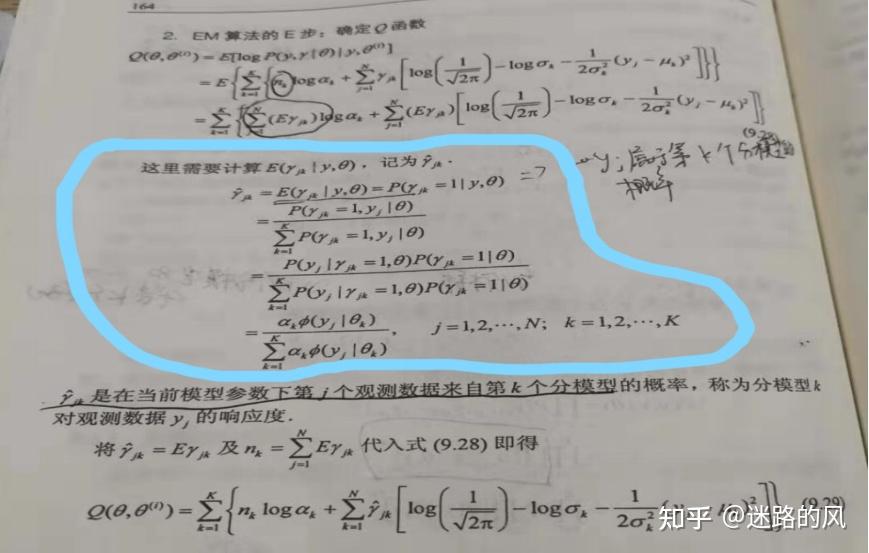 164
2. EM 算法的 E 步：确定 Q 函数
Q(θ,θ^(i)) = E[log P(y,γ|θ)|y,θ^(i)]
= E{∑_{k=1}^{K}{n_k log α_k + ∑_{j=1}^{N} γ_jk [log(1/√2π) − log σ_k − 1/(2σ_k^2) (y_j − μ_k)^2]}}
= ∑_{k=1}^{K}{∑_{j=1}^{N}(Eγ_jk) log α_k + ∑_{j=1}^{N}(Eγ_jk)[log(1/√2π) − log σ_k − 1/(2σ_k^2) (y_j − μ_k)^2]}
(9.28)
这里需要计算 E(γ_jk|y,θ)，记为 γ̂_jk．
γ̂_jk = E(γ_jk|y,θ) = P(γ_jk = 1|y,θ) =>
y_j 属于第 k 个分模型的
概率
= P(γ_jk = 1, y_j|θ) / ∑_{k=1}^{K} P(γ_jk = 1, y_j|θ)
= P(y_j|γ_jk = 1,θ)P(γ_jk = 1|θ) / ∑_{k=1}^{K} P(y_j|γ_jk = 1,θ)P(γ_jk = 1|θ)
= α_k φ(y_j|θ_k) / ∑_{k=1}^{K} α_k φ(y_j|θ_k)， j = 1,2,⋯,N； k = 1,2,⋯,K
γ̂_jk 是在当前模型参数下第 j 个观测数据来自第 k 个分模型的概率，称为分模型 k
对观测数据 y_j 的响应度．
将 γ̂_jk = Eγ_jk 及 n_k = ∑_{j=1}^{N} Eγ_jk 代入式 (9.28) 即得
Q(θ,θ^(i)) = ∑_{k=1}^{K}{n_k log α_k + ∑_{k=1}^{N} γ̂_jk [log(1/√2π) − log σ_k − 1/(2σ_k^2) (y_j − μ_k)^2]} (9.29)
知乎 @迷路的风